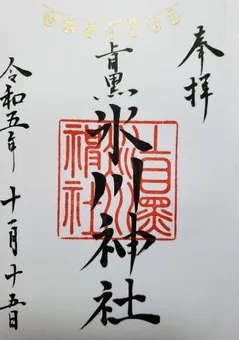 奉拝
上目黒
氷川神社
上目黒
令和五年 十一月十五日